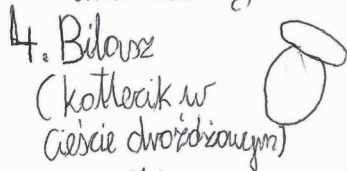 4. Bilasz
(kotlecik w
cieście drożdżowym)